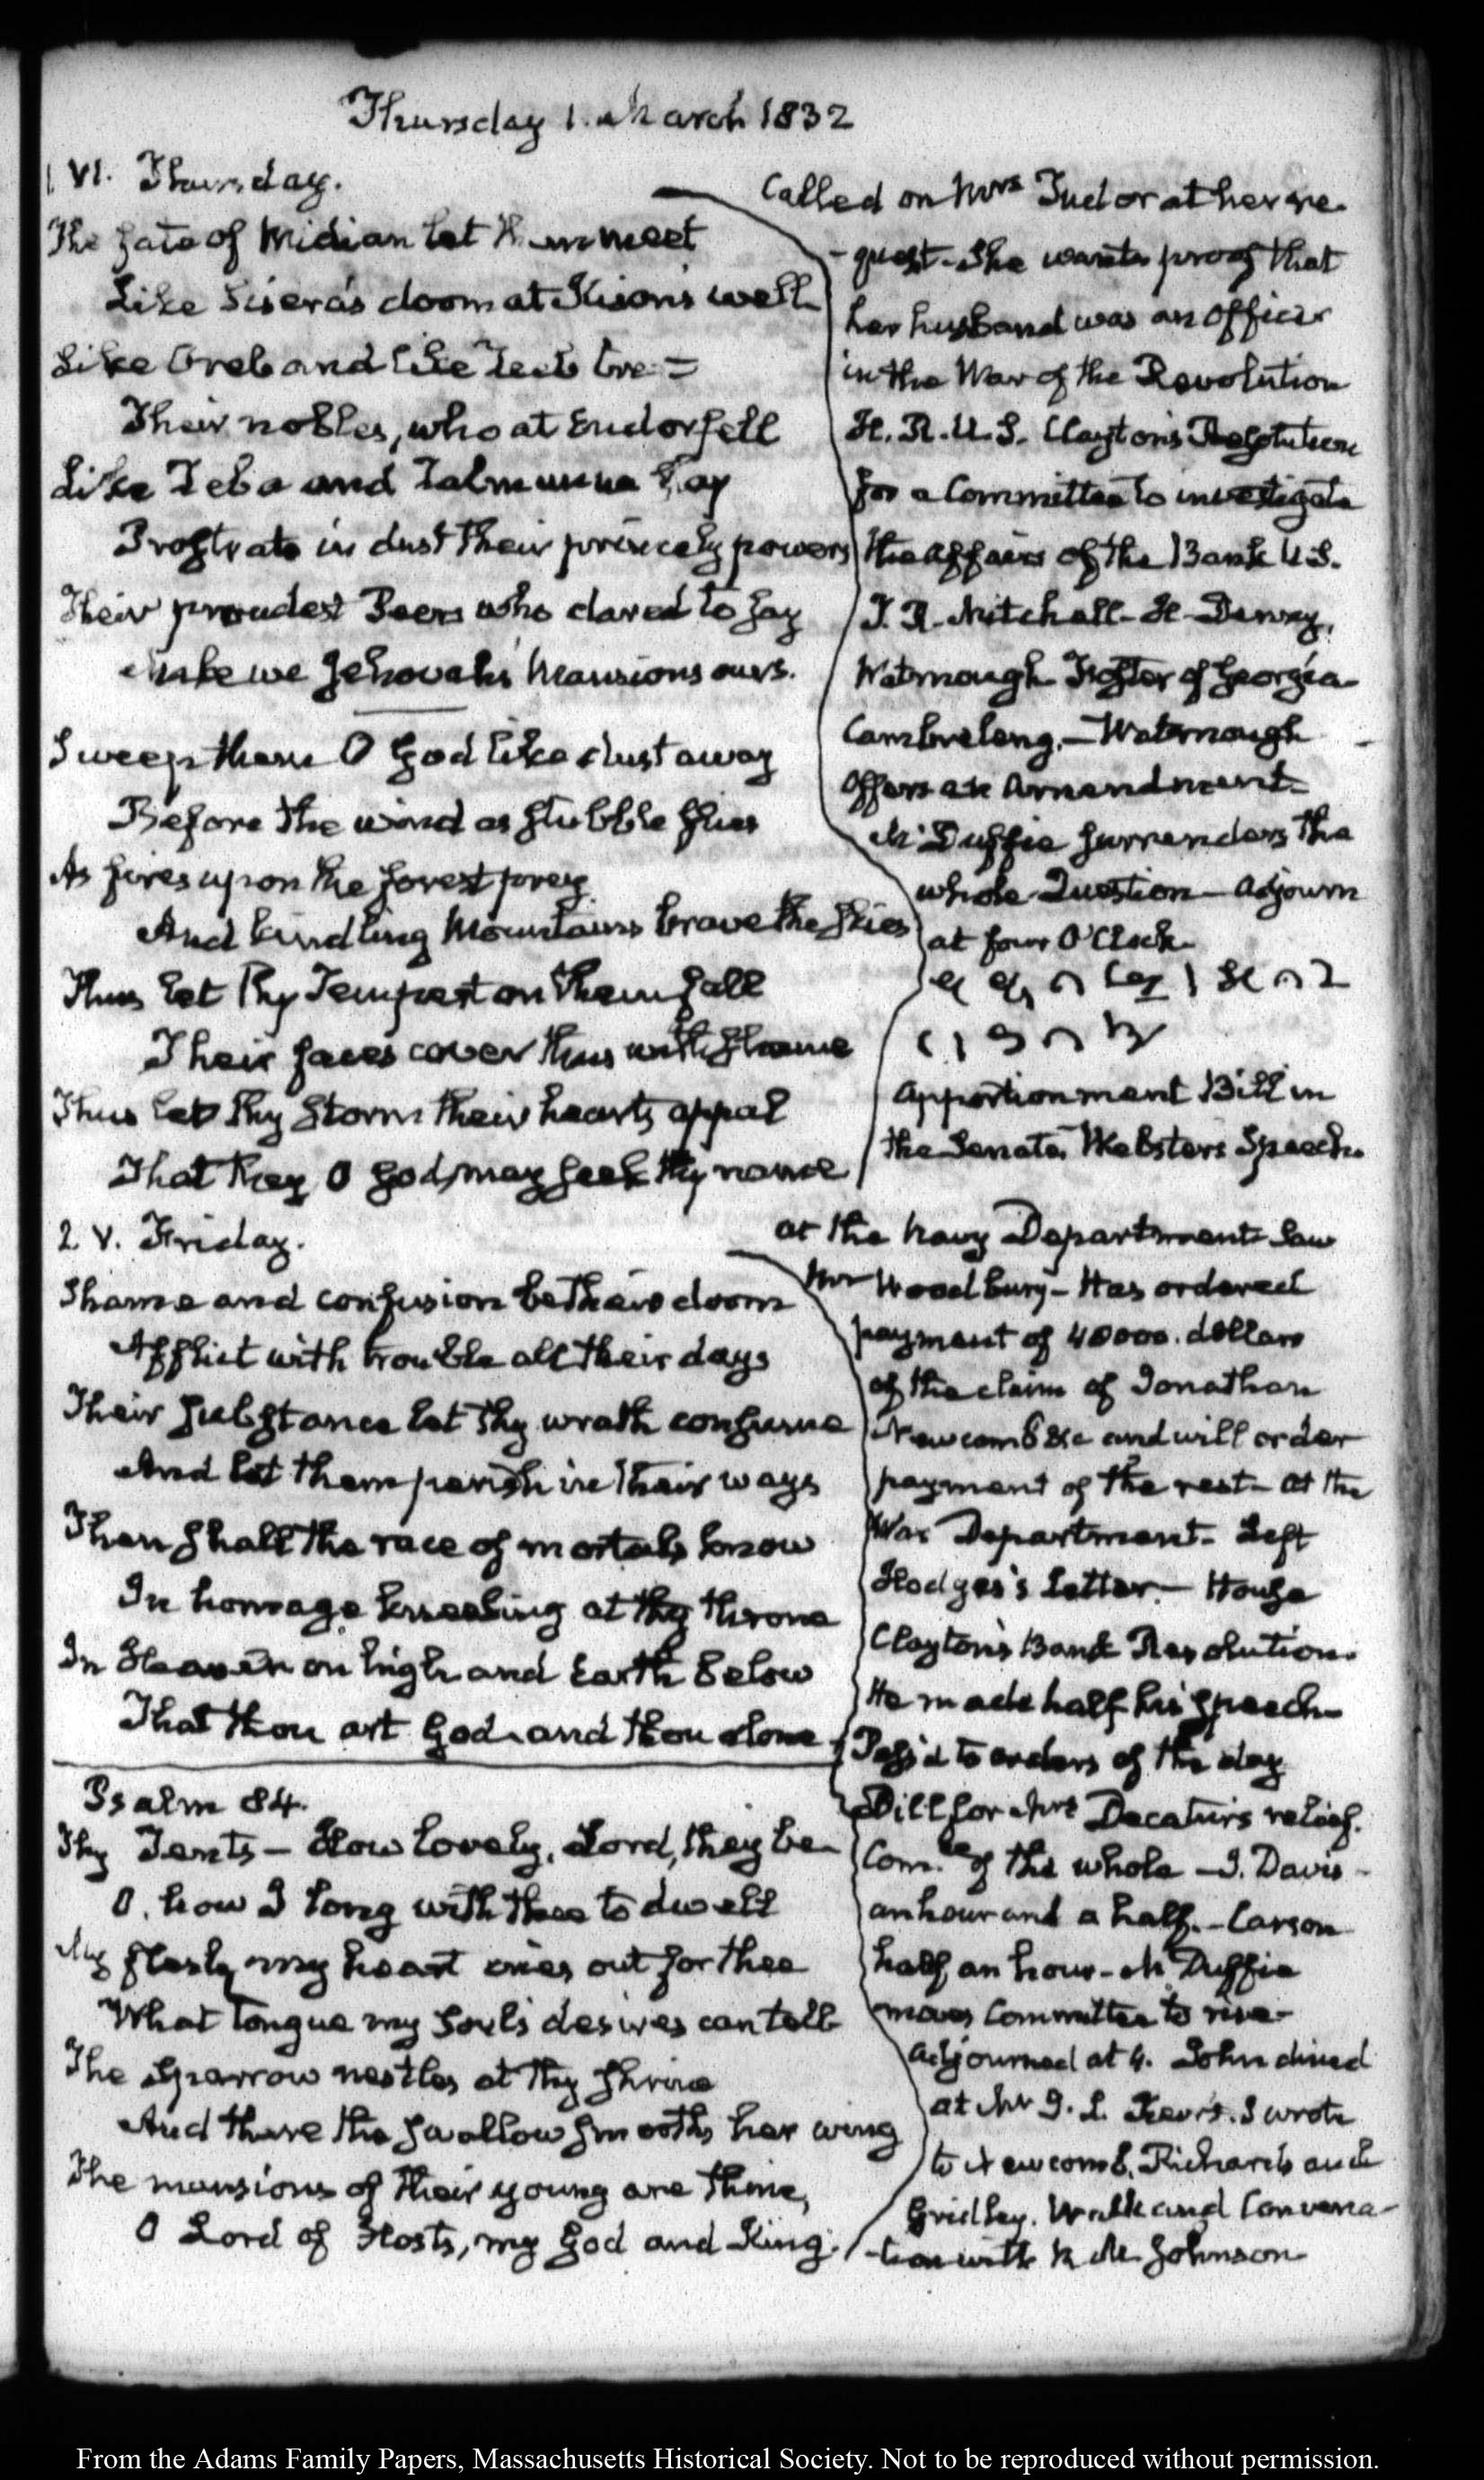 Thursday 1. March 1832
1 VI. Thursday.
The fate of Midian let them meet
Like Sisera's doom at Kison's well
Like Oreb and like Zeeb be =
Their nobles, who at Endor fell
Like Zeba and Zalmunna lay
Prostrate in dust their princely powers
Their proudest Peers who dared to say
Make we Jehovah's Mansions ours.
Sweep them O God like dust away
Before the wind as stubble flies
As fires upon the forest prey
And kindling Mountains brave the skies
Thus let Thy Tempest on them fall
Their faces cover thus with shame
Thus let thy Storm their hearts appal
That they O God, may seek thy name
Called on Mrs Tudor at her re-
-quest. She wants proof that
her husband was an officer
in the War of the Revolution
H. R. U.S. Clayton's Resolution
for a Committee to investigate
the affairs of the Bank U.S.
T. R. Mitchell - H - Dewey,
Watmough Foster of Georgia
Cambreleng. - Watmough
offers an Amendment -
McDuffie surrenders the
whole Question - Adjourn
at four O'Clock -
Apportionment Bill in
the Senate, Webster's Speech.
2 V. Friday.
Shame and confusion be their doom
Afflict with trouble all their days
Their substance let thy wrath consume
And let them perish in their ways
Then shall the race of mortals know
In homage kneeling at thy throne
In Heaven on high and Earth below
That thou art God and thou alone.
Psalm 84.
Thy Tents - How lovely, Lord, they be
O. how I long with thee to dwell
My flesh, my heart cries out for thee
What tongue my Soul's desires can tell
The Sparrow nestles at thy shrine
And there the swallow smooths her wing
The mansions of their young are thine,
O Lord of Hosts, my God and King.
at the Navy Department saw
Mr Woodbury - Has ordered
payment of 40000. dollars
of the claim of Jonathan
Newcomb &c and will order
payment of the rest - at the
War Department - Left
Hodges's Letter. - House
Clayton's Bank Resolution.
He made half his speech -
Pass'd to orders of the day
Bill for Mrs Decatur's relief.
Com.ee of the whole - J. Davis -
an hour and a half. - Carson
half an hour - McDuffie
moves Committee to rise -
adjourned at 4. John dined
at Mr J. L. I wrote
to Newcomb, Richards and
Gridley. Walk and Conversa-
-tion with R M Johnson -
From the Adams Family Papers, Massachusetts Historical Society. Not to be reproduced without permission.